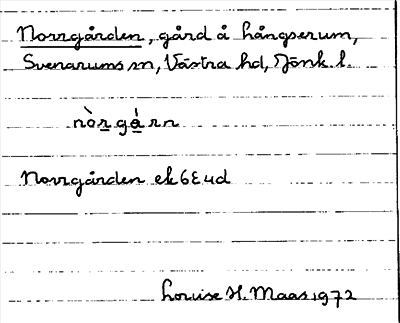 Norrgården, gård å hångserum,
Svenarums sn, Västra hd, Jönk. l.
nòr gá rn
Norrgården ek 6E 4d
Louise H. Maas 1972